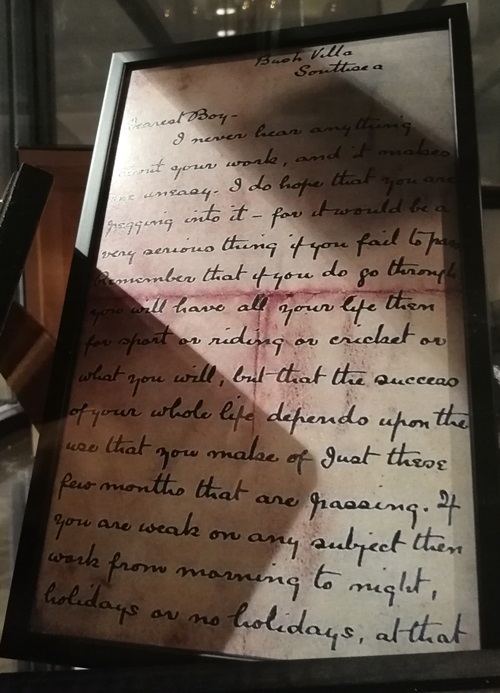 Bush Villa
Southsea
Dearest Boy-
I never hear anything
about your work, and it makes
me uneasy. I do hope that you are
pegging into it - for it would be a
very serious thing if you fail to pass
Remember that if you do go through
you will have all your life then
for sport or riding or cricket or
what you will, but that the success
of your whole life depends upon the
use that you make of Just these
few months that are passing. If
you are weak on any subject then
work from morning to night,
holidays or no holidays, at that